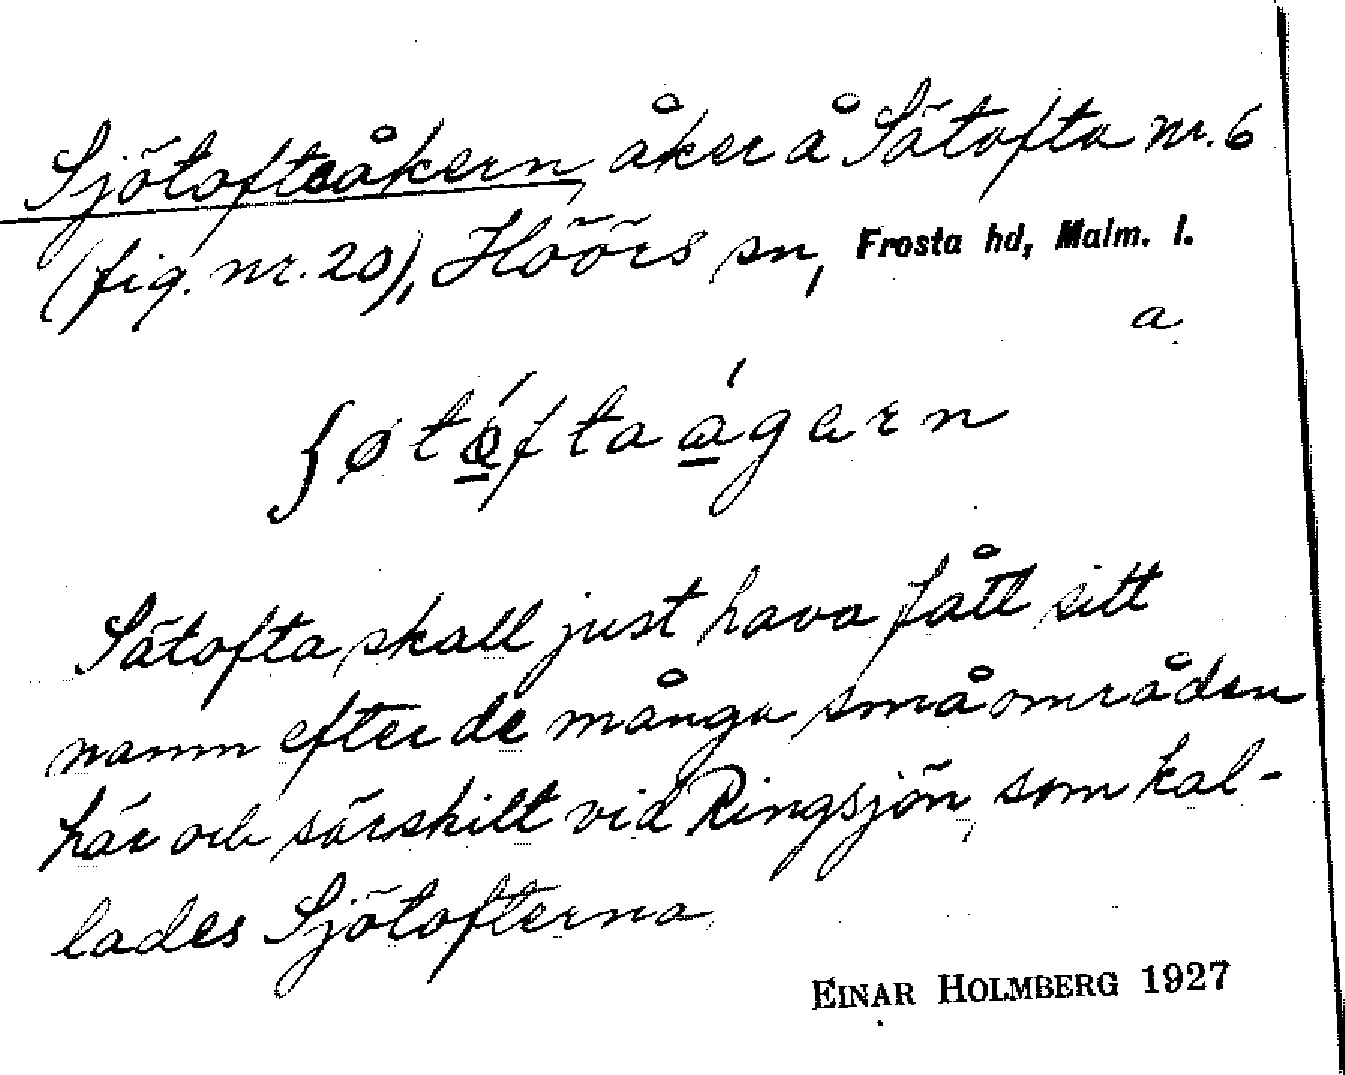 Sjötofteåkern, åker å Sätofta nr. 6
(fig. nr. 20), Höörs sn, Frosta hd, Malm. l.
a
ʃøtǫ́ftaág̨ern
Sätofta skall just hava fått sitt
namn efter de många småområden
här och särskilt vid Ringsjön, som kal-
lades Sjötofterna.
EINAR HOLMBERG 1927